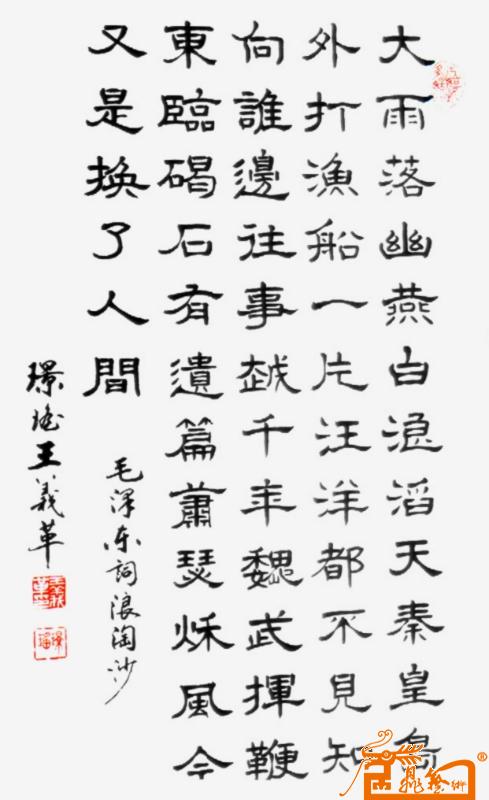 大雨落幽燕白浪滔天秦皇島
外打漁船一片汪洋都不見知
向誰邊往事越千年魏武揮鞭
東臨碣石有遺篇蕭瑟秋風今
又是换了人間
毛泽东詞浪淘沙
璟瑤王義革